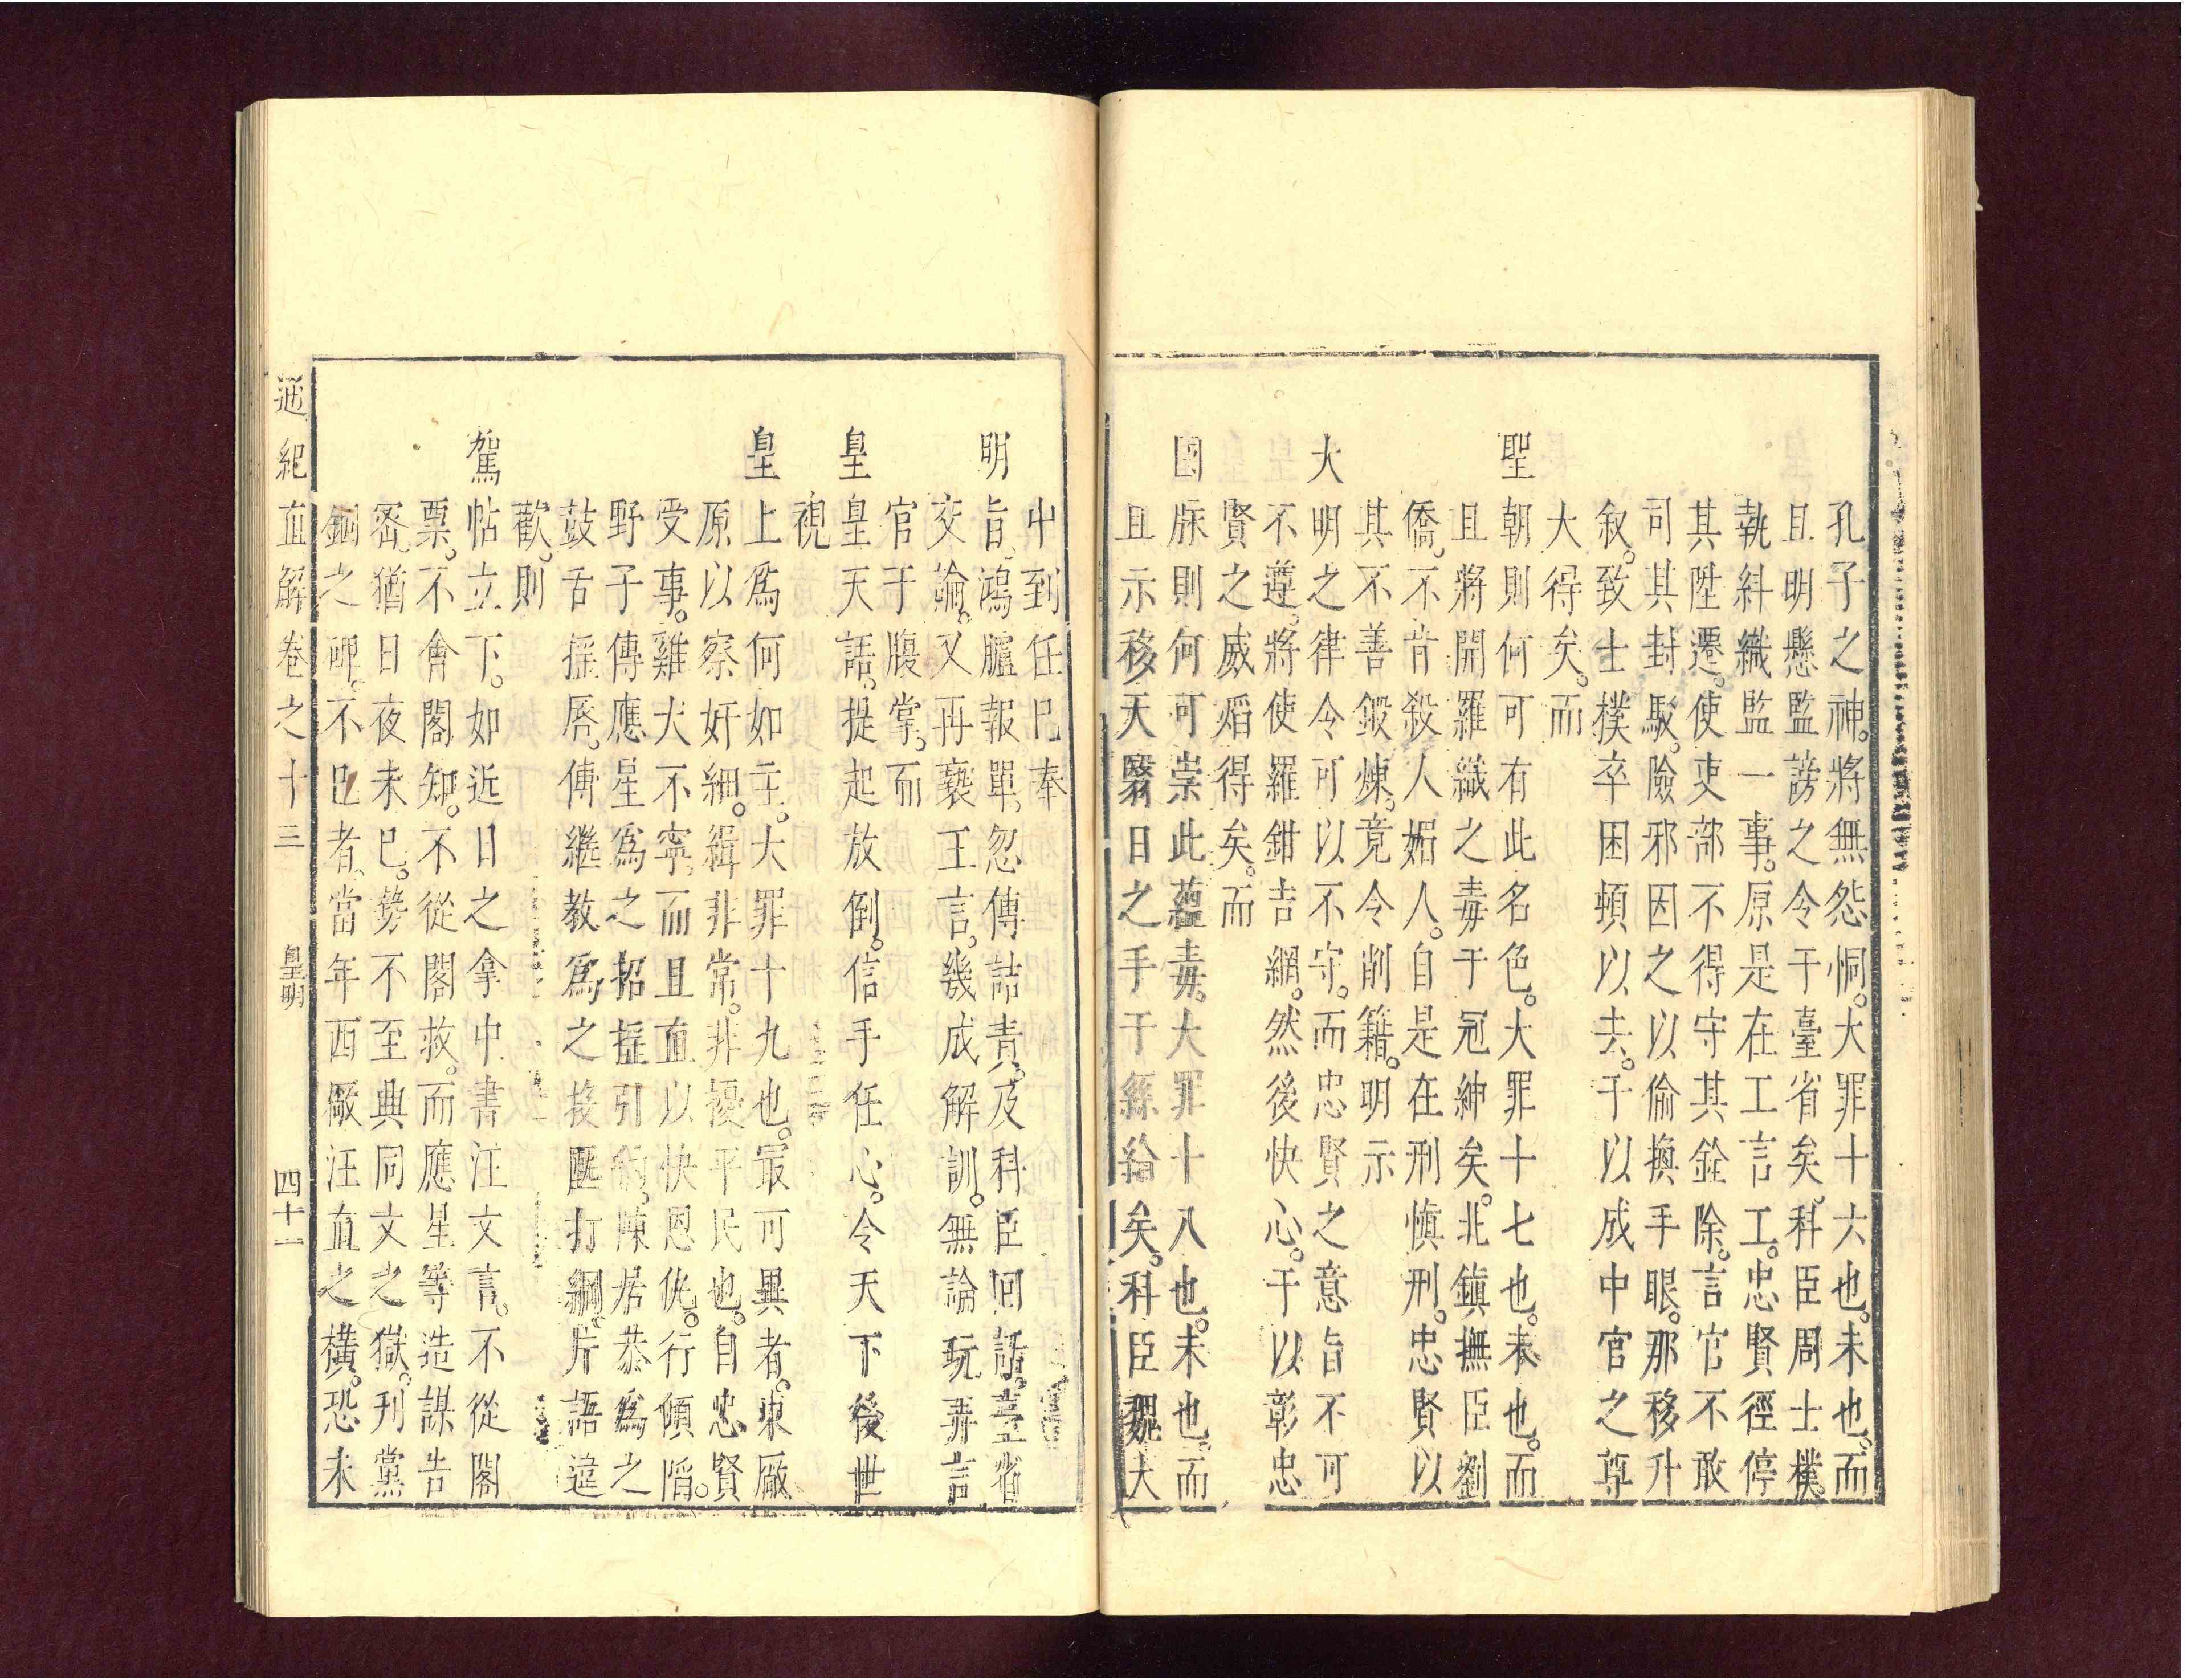 孔子之神。將無怨恫。大罪十六也。未也。而
且明懸監謗之令于臺省矣。科臣周士樸。
執糾織監一事。原是在工言工。忠賢徑停
其陞遷。使吏部不得守其銓除。言官不敢
司其封駁。險邪因之以偷換手眼。那移升
叙。致士樸卒困頓以去。于以成中官之尊
大得矣。而
聖朝則何可有此名色。大罪十七也。未也。而
且將開羅織之毒于冠紳矣。北鎮撫臣劉
僑。不肯殺人媚人。自是在刑慎刑。忠賢以
其不善鍛煉。竟令削籍。明示
大明之律令可以不守。而忠賢之意旨不可
不遵。將使羅鉗吉網。然後快心。于以彰忠
賢之威焰得矣。而
國脉則何可崇此蘊毒。大罪十八也。未也。而
且示移天翳日之手于絲綸矣。科臣魏大
中到任已奉
明旨。鴻臚報單。忽傳詰責。及科臣回話。臺省
交論。又再褻王言。幾成解訓。無論玩弄言
官于腹掌。而
皇皇天語。提起放倒。信手任心。令天下後世
視
皇上為何如主。大罪十九也。最可異者。東厰
原以察奸細。緝非常。非擾平民也。自忠賢
受事。雞犬不寧。而且直以快恩仇。行傾陷。
野子傳應星為之招搖引納。陳居恭為之
鼓舌搖唇。傅繼教為之投匭打網。片語違
歡。則
駕帖立下。如近日之拿中書汪文言。不從閣
票。不會閣知。不從閣救。而應星等造謀告
密。猶日夜未已。勢不至典同文之獄。刋黨
錮之碑。不已者。當年西厰汪直之橫。恐未
通紀直解卷之十三 皇明 四十一